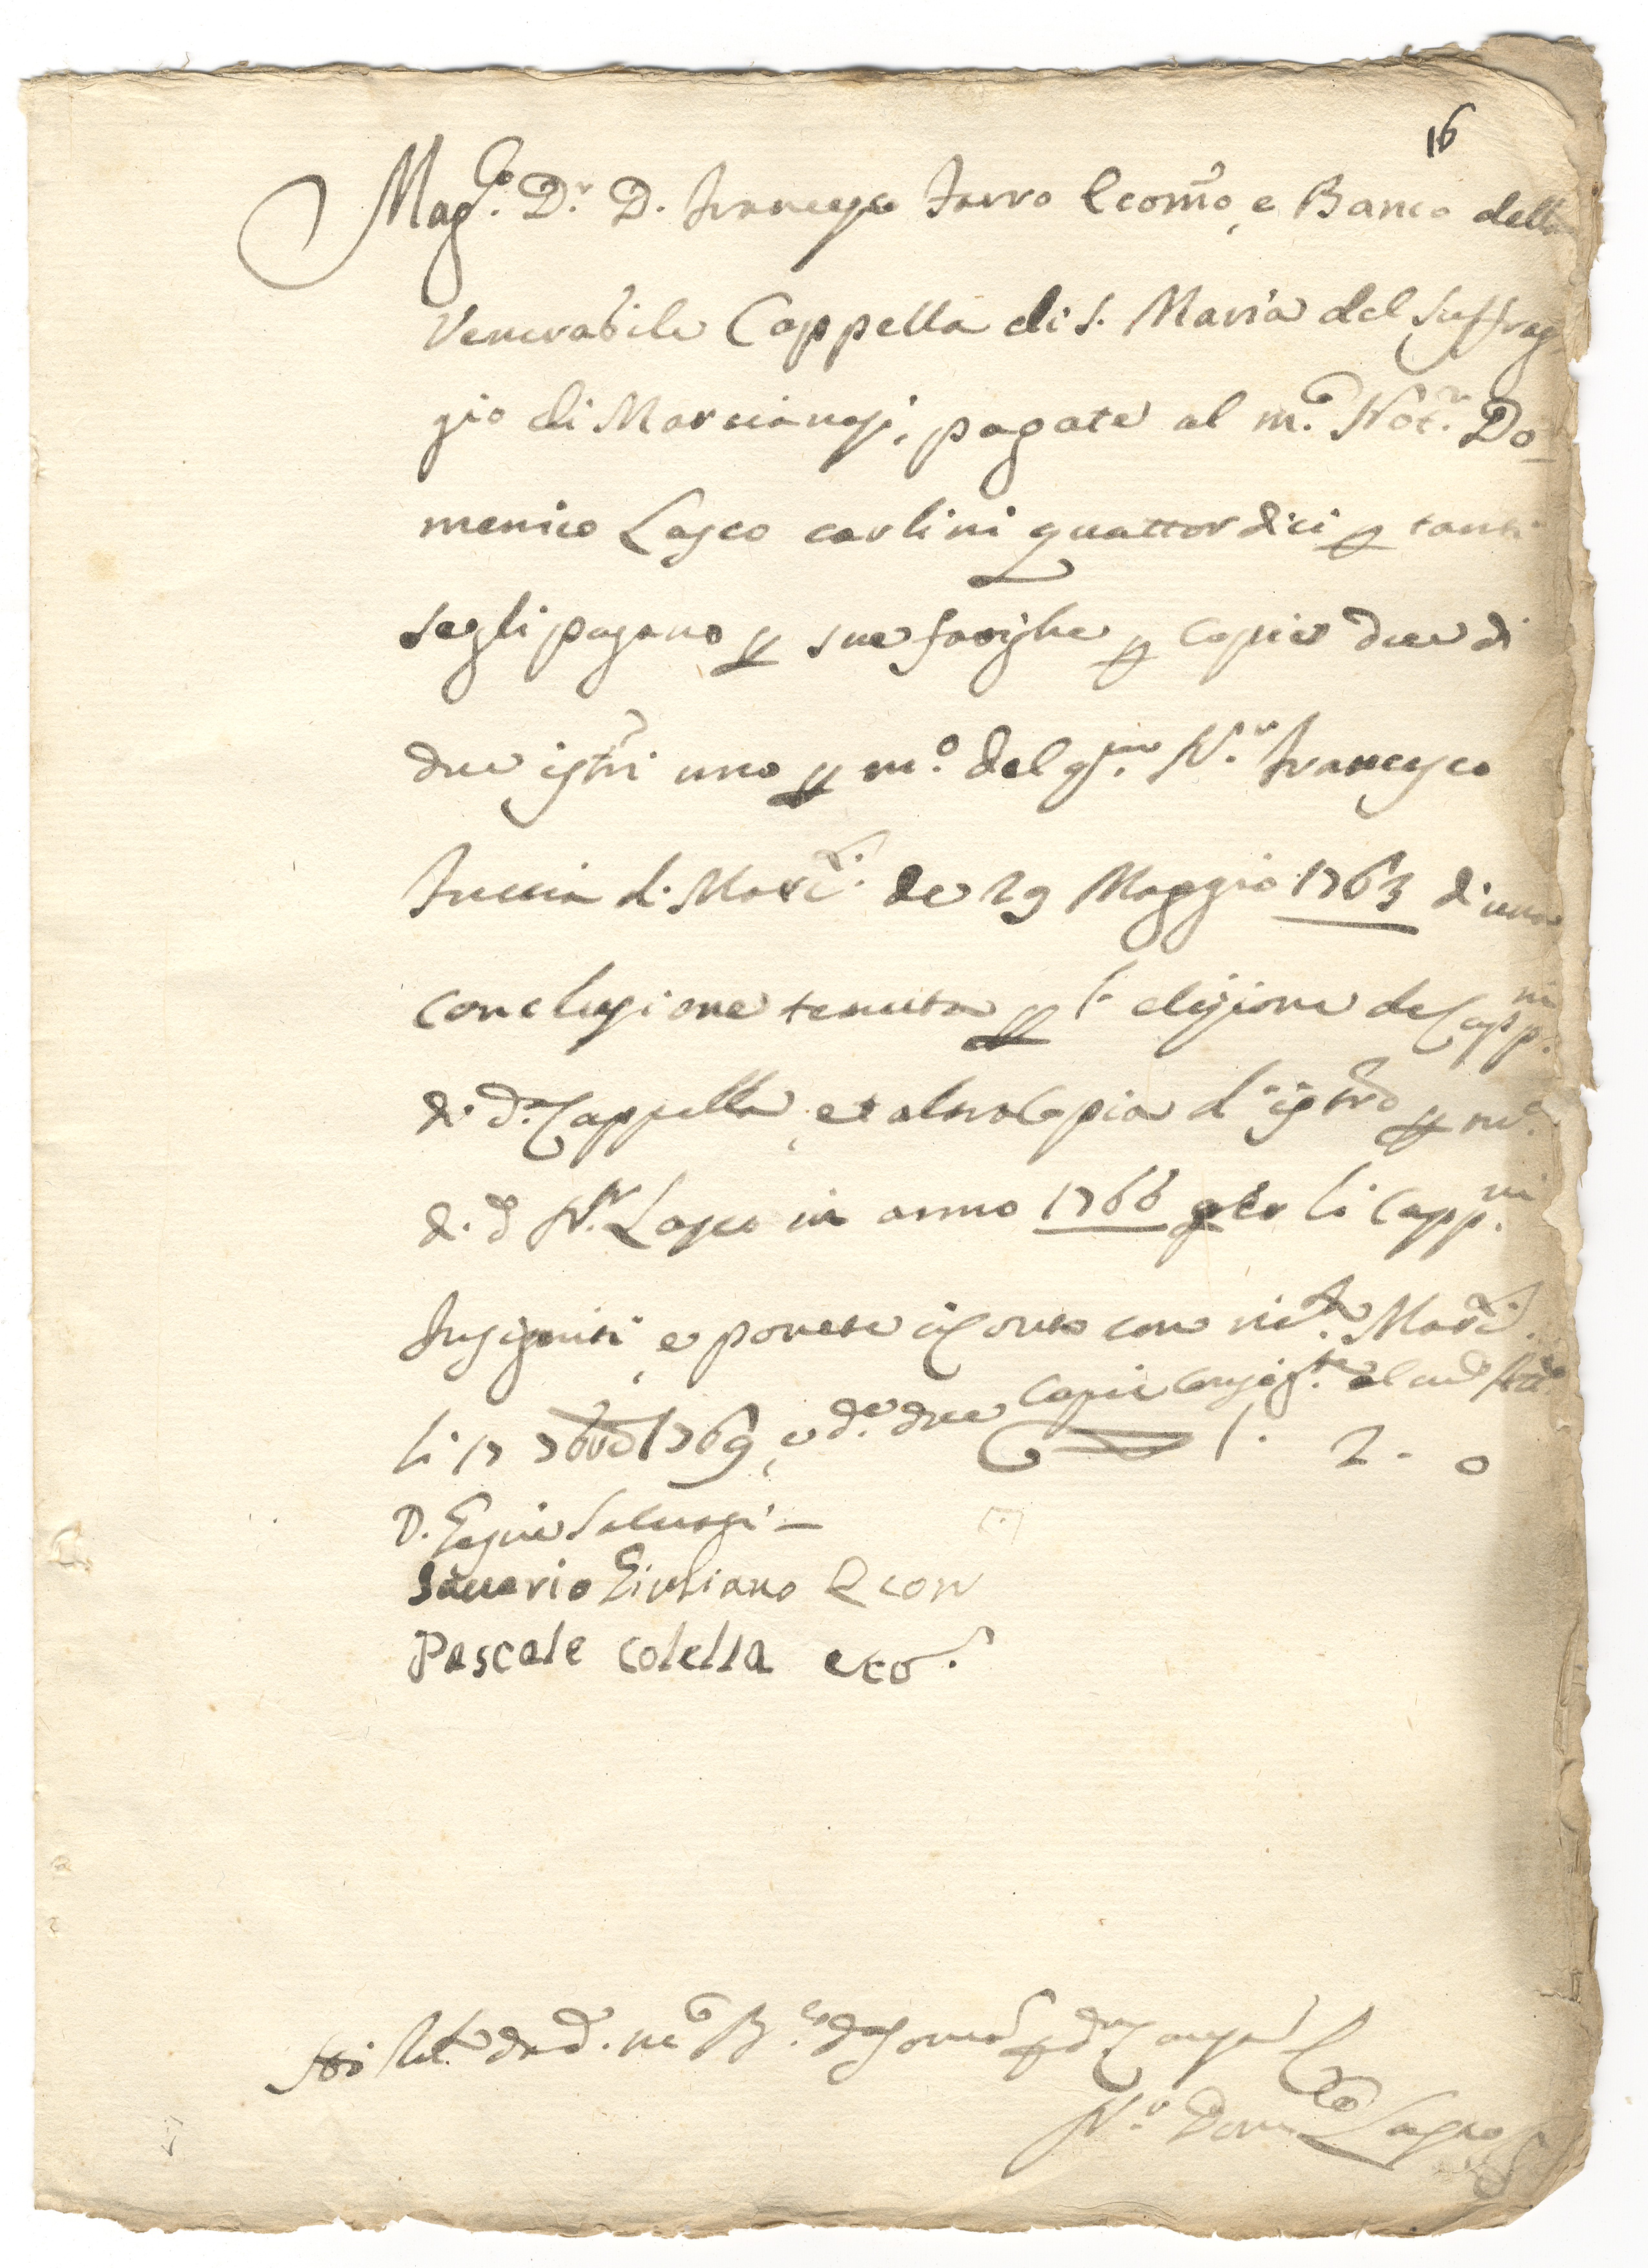 16
Mag.co D.r D. Francesco Farro Econ̄o, e Banco della
Venerabile Cappella di S. Maria del Suffrag
gio di Marcianisi, pagate al m.co Not.r Do
menico Lasco carlini quattordici p tanti
segli pagano p sue fatighe p copie due di
due istri uno p m.o del q.m N.r Francesco
di Marc.si de 29 Maggio 1763 d'una
conclusione tenuta p l' elezione de Capp.ni
di d.a Cappella, et altra Copia d'istro p m.o
di d.o N.r Lasco in anno 1766 per li Capp.ni
e ponete a conto con Marc.si
li 17 7bre 1769, e d.e due copie al
1. 2. 0
D. Salvagi
Saverio Giuliano Econ
Pascale Colella eco.
Io de d.o m.co
N.r Dom.co Lasco